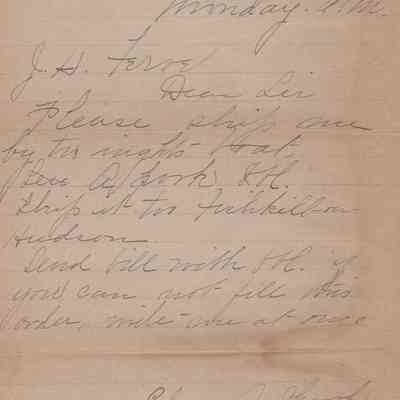 Monday. A.M.
J. H.
Dear Sir
Please ship me
by to nights boat
One
Ship it to Fishkill on
Hudson.
Send bill with bbl. if
you can not fill this
order, write me at once